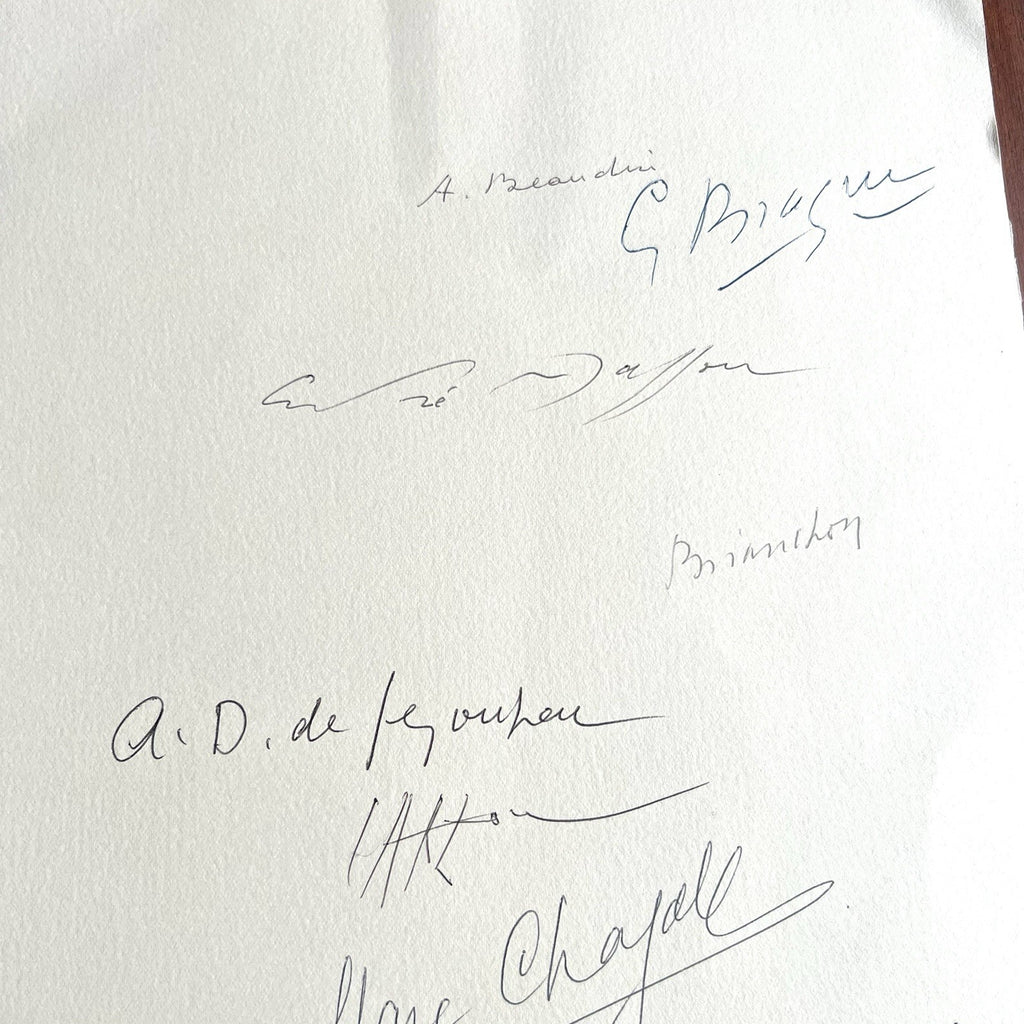 A. Beaudin
G Braque
André Masson
Brianchon
A. D. de Segonzac
Marc Chagall